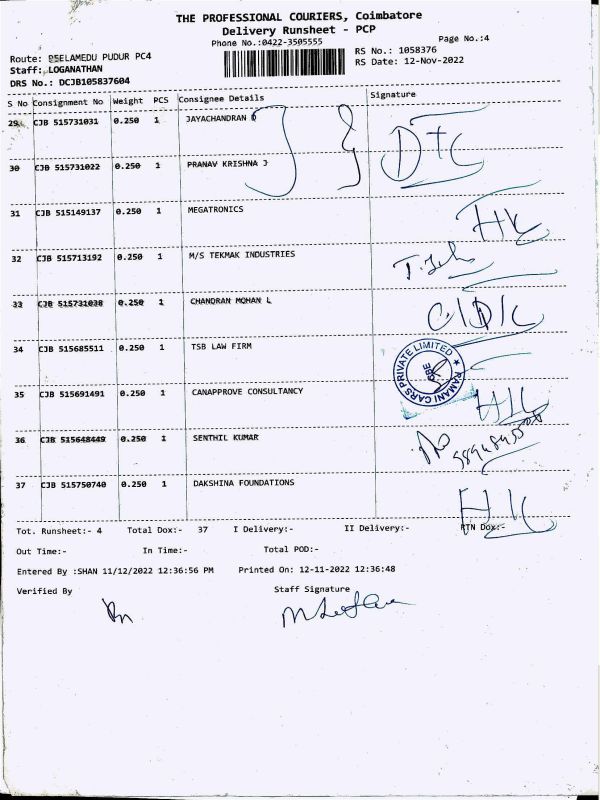 THE PROFESSIONAL COURIERS, Coimbatore
Delivery Runsheet - PCP
Phone No.:0422-3505555
Page No.:4
Route: PEELAMEDU PUDUR PC4
RS No.: 1058376
Staff: LOGANATHAN
RS Date: 12-Nov-2022
DRS No.: DCJB105837604
S No Consignment No Weight PCS Consignee Details Signature
29 CJB 515731031 0.250 1 JAYACHANDRAN
30 CJB 515731022 0.250 1 PRANAV KRISHNA J
DTC
31 CJB 515149137 0.250 1 MEGATRONICS
HK
32 CJB 515713192 0.250 1 M/S TEKMAK INDUSTRIES
33 CJB 515731038 0.250 1 CHANDRAN MOHAN L
34 CJB 515685511 0.250 1 TSB LAW FIRM
RAMANI CARS PRIVATE LIMITED ★
CBE
35 CJB 515691491 0.250 1 CANAPPROVE CONSULTANCY
HK
36 CJB 515648449 0.250 1 SENTHIL KUMAR
37 CJB 515750740 0.250 1 DAKSHINA FOUNDATIONS
HK
Tot. Runsheet:- 4 Total Dox:- 37 I Delivery:- II Delivery:- RTN Dox:-
Out Time:- In Time:- Total POD:-
Entered By :SHAN 11/12/2022 12:36:56 PM Printed On: 12-11-2022 12:36:48
Verified By Staff Signature